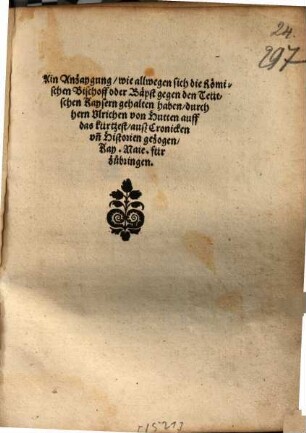 24.
297
Ain Anzaygung / wie allwegen sich die Römi-
schen Bischoff oder Bäpst gegen den Teüt-
schen Kaysern gehalten haben / durch
hern Vlrichen von Hutten auff
das kürtzest / auß Cronicken
vñ Historien gezogen /
Kay. Maie. für
zůbringen.